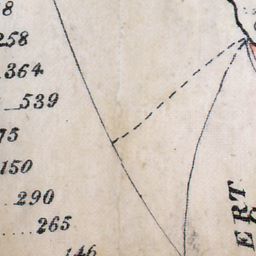 8
258
364
539
75
150
290
265
146
ERT